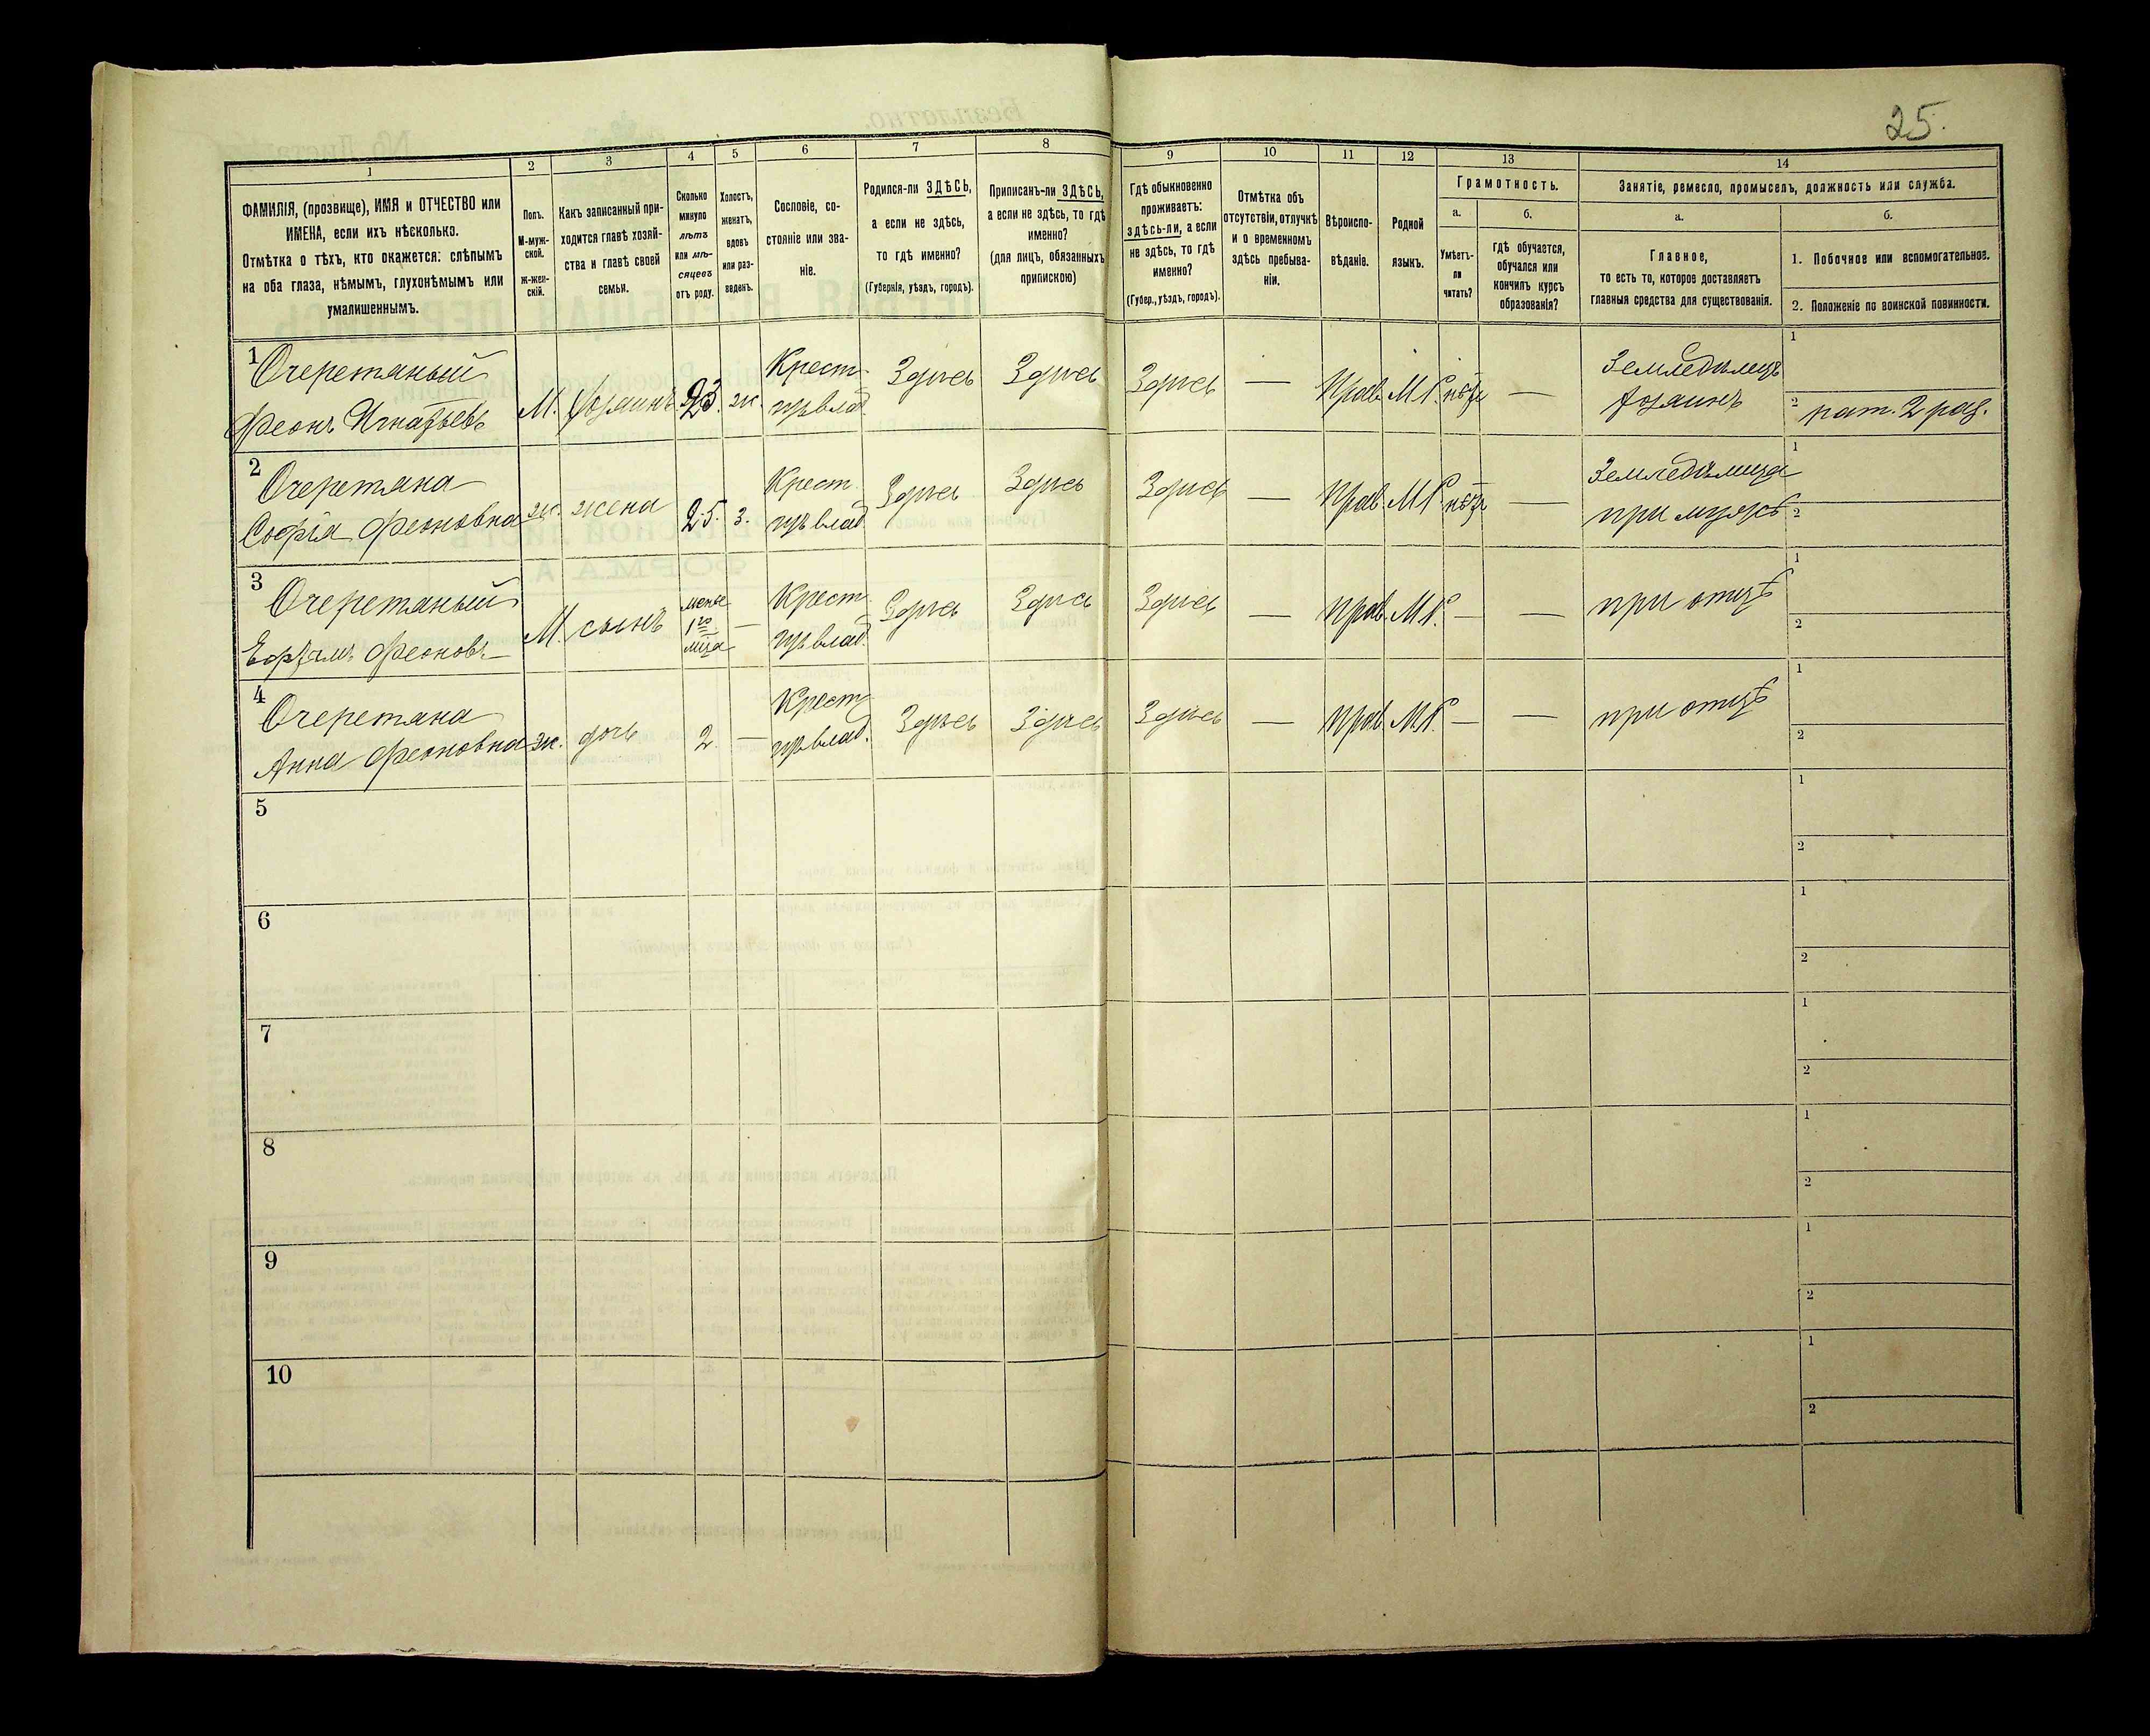 25.
1
2
3
4
5
6
7
8
9
10
11
12
13
14
ФАМИЛІЯ, (прозвище), ИМЯ и ОТЧЕСТВО или
ИМЕНА, если ихъ нѣсколько.
Отмѣтка о тѣхъ, кто окажется: слѣпымъ
на оба глаза, нѣмымъ, глухонѣмымъ или
умалишеннымъ.
Полъ.
М-муж-
ской.
Ж-жен-
скій.
Какъ записанный при-
ходится главѣ хозяй-
ства и главѣ своей
семьи.
Сколько
минуло
лѣтъ
или мѣ-
сяцевъ
отъ роду.
Холостъ,
женатъ,
вдовъ
или раз-
веденъ.
Сословіе, со-
стояніе или зва-
ніе.
Родился-ли ЗДѢСЬ,
а если не здѣсь,
то гдѣ именно?
(Губернія, уѣздъ, городъ).
Приписанъ-ли ЗДѢСЬ,
а если не здѣсь, то гдѣ
именно?
(для лицъ, обязанныхъ
припискою)
Гдѣ обыкновенно
проживаетъ:
здѣсь-ли, а если
не здѣсь, то гдѣ
именно?
(Губер., уѣздъ, городъ).
Отмѣтка объ
отсутствіи, отлучкѣ
и о временномъ
здѣсь пребыва-
ніи.
Вѣроиспо-
вѣданіе.
Родной
языкъ.
Грамотность.
а.
Умѣетъ-
ли
читать?
б.
гдѣ обучается,
обучался или
кончилъ курсъ
образованія?
Занятіе, ремесло, промыселъ, должность или служба.
а.
Главное,
то есть то, которое доставляетъ
главныя средства для существованія.
б.
1. Побочное или вспомогательное.
2. Положеніе по воинской повинности.
1
Очеретяный
Феонъ Игнатьевъ
М. хозяинъ 23. ж.
Крест.
пр. влад.
Здѣсь Здѣсь Здѣсь — Прав. М.Р. нѣтъ —
Земледѣлецъ
хозяинъ
1
2 рат. 2 раз.
2
Очеретяна
Софія Феоновна
ж. жена 25. з.
Крест.
пр. влад.
Здѣсь Здѣсь Здѣсь — Прав. М.Р. нѣтъ —
Земледѣлица
при мужѣ
1
2
3
Очеретяный
Феоновъ
М. сынъ
менѣе
1го
мца
—
Крест.
пр. влад.
Здѣсь Здѣсь Здѣсь — Прав. М.Р. — —
при отцѣ
1
2
4
Очеретяна
Анна Феоновна
ж. дочь 2. —
Крест.
пр. влад.
Здѣсь Здѣсь Здѣсь — Прав. М.Р. — —
при отцѣ
1
2
5
1
2
6
1
2
7
1
2
8
1
2
9
1
2
10
1
2